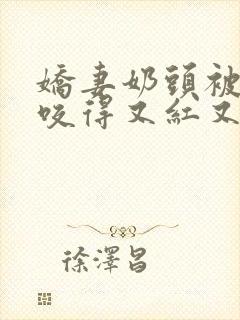 嬌妻奶頭被
咬得又紅又
徐澤昌